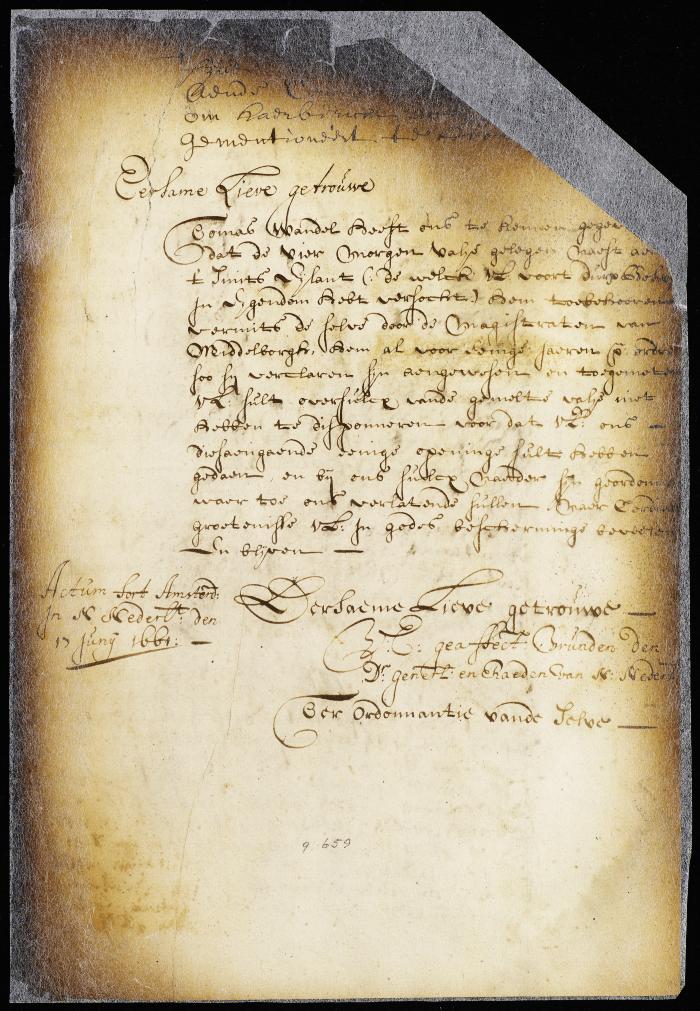 Aende
om haer
gementioneert te
Eersame Lieve getrouwe
Tomas Wandel heeft ons te kennen gege
dat de vier morgen valye gelegen naest ae
t Smits Eylant (: de welck UL: voort durp
In Eygendom hebt versocht:) hem toebehooren
vermits de selve door de Magistraten van
Middelborgh, hem al voor eenige jaeren p: ordre
soo sij verclaren sijn aengewesen en toegemeten
UL: sult oversulcx vande gemelte valye niet
hebben te disponneren voor dat UL: ons
diesaengaende eenige openinge sult hebben
gedaen, en bij ons sulcx naerder sij geordon
waer toe ons verlatende sullen naer
groetenisse UL: In godes bescherminge bevelen
En blijven
Actum fort Amsterd:
In N Nederl^t: den
17 Junij 1661:
Eersaeme Lieve getrouwe
U: L: geaffect Vrunden den
D^r. gener^l: en Raeden van N: Nederl
Ter Ordonnantie vande selve
9. 659